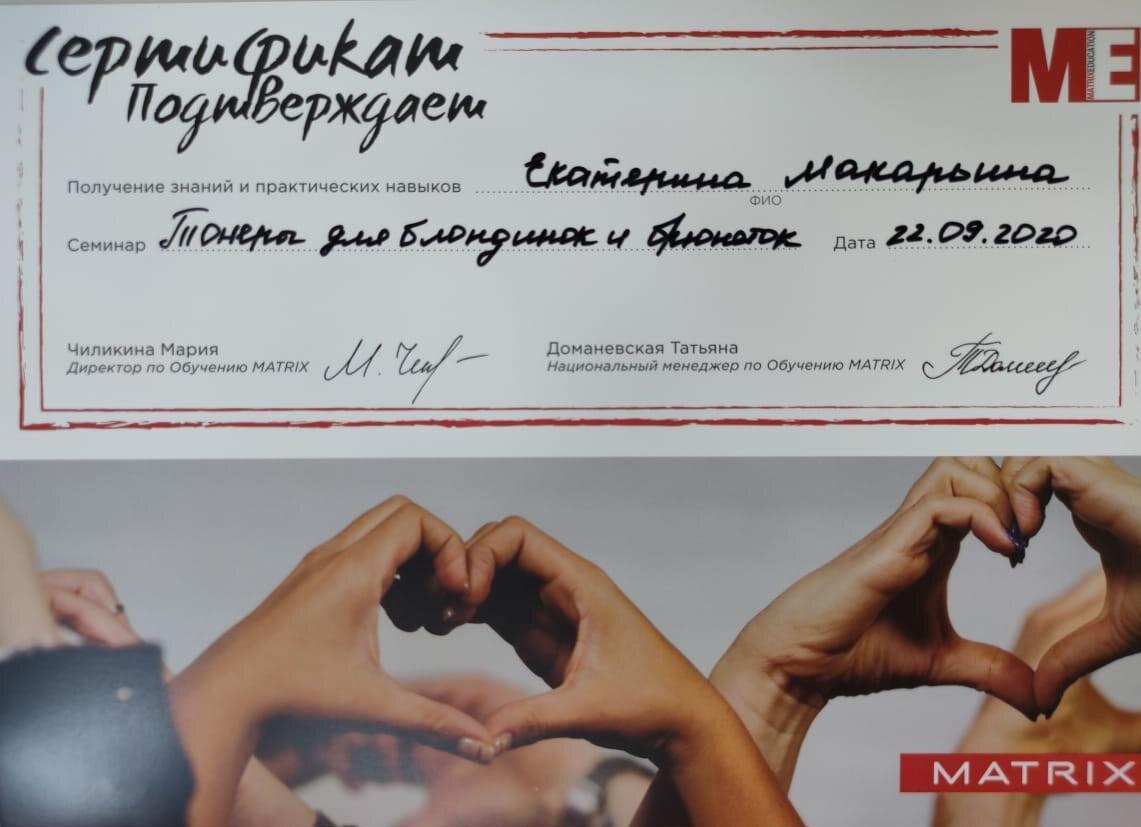 Сертификат
Подтверждает
ME
MATRIX EDUCATION
Получение знаний и практических навыков Екатерина Макарьина
ФИО
Семинар Тонеры для блондинок и брюнеток Дата 22.09.2020
Чиликина Мария
Директор по Обучению MATRIX
Доманевская Татьяна
Национальный менеджер по Обучению MATRIX
MATRIX